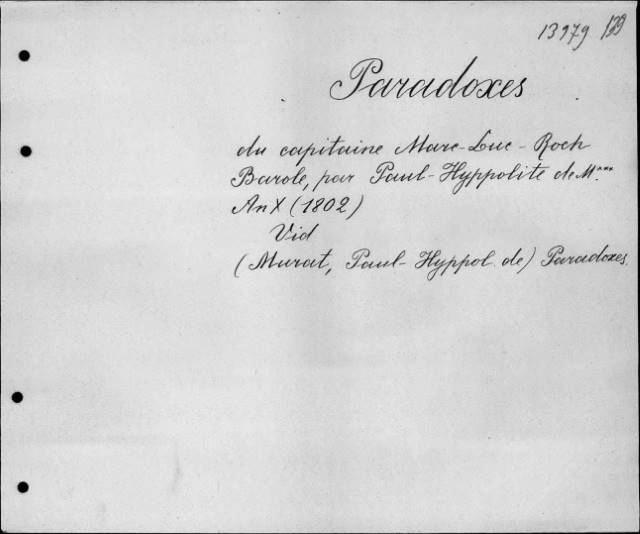 13979
Paradoxes
du capitaine Marc-Luc-Roch
Barole, par Paul-Hyppolite de M***
An X (1802)
Vid
(Murat, Paul-Hyppol. de) Paradoxes.